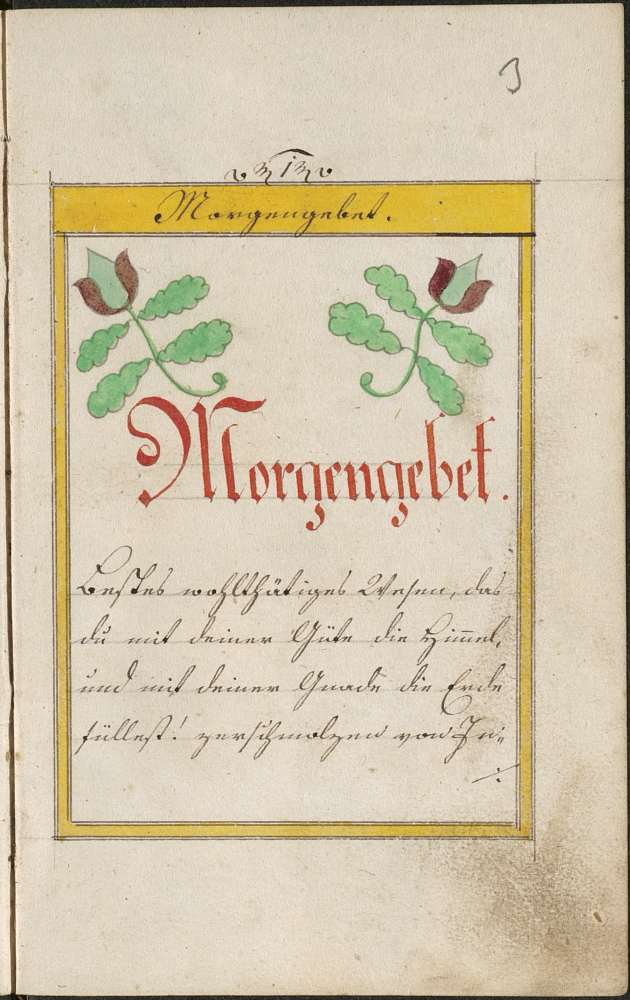 3
1
Morgengebet.
Morgengebet.
Bestes wohlthätiges Wesen, das
du mit deiner Güte die Him̅el,
und mit deiner Gnade die Erde
füllest! zerschmolzen von In⸗
./.